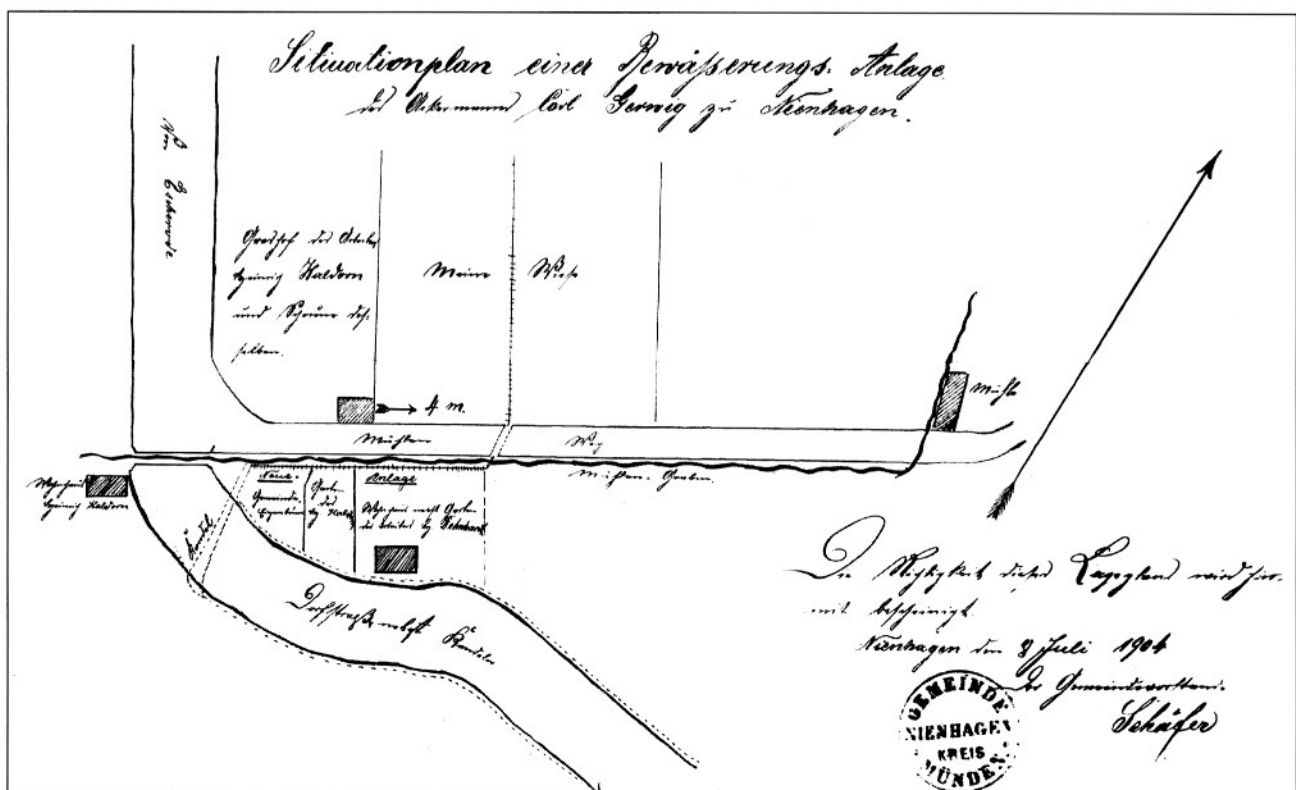 Situationsplan einer Bewässerungs-Anlage
des Ackermanns Carl Gerwig zu Nienhagen.
Von Escherode
Grashof des
Heinrich Kaldorn
und Scheune des-
selben.
Meine Wiese
4 m.
Mühle
Mühlen Weg
Mühlen-Graben.
Wohnhaus
Heinrich Kaldorn
Neue Anlage
Gemeinde
Eigenthum
Garten
des
Wohnhaus nebst Garten
des
Kandel
Dorfstraße nebst Kandeln
Die Richtigkeit dieses Lageplans wird hier-
mit bescheinigt.
Nienhagen den 8 Juli 1904
Der Gemeindevorstand.
Schäfer
GEMEINDE
NIENHAGEN
KREIS
MÜNDEN